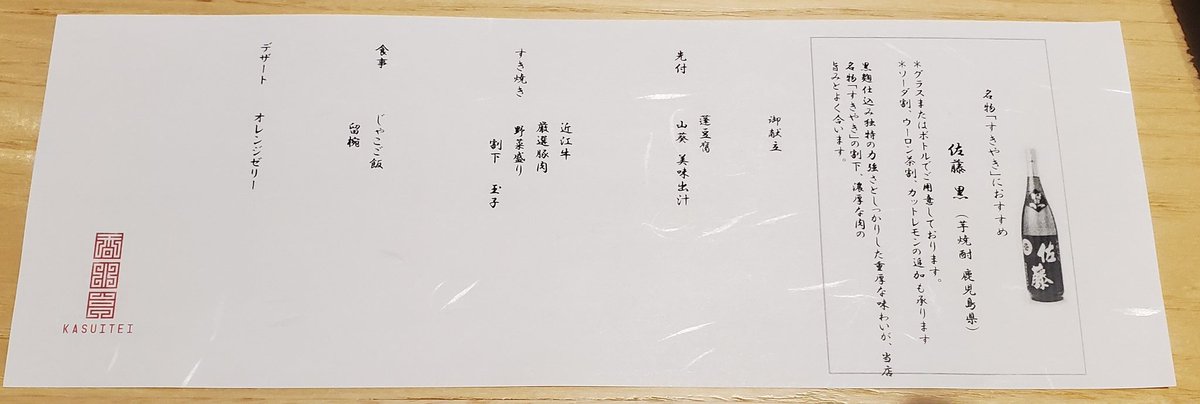 名物「すきやき」におすすめ
佐藤 黒 (芋焼酎 鹿児島県)
*グラスまたはボトルでご用意しております。
*ソーダ割、ウーロン茶割、カットレモンの追加も承ります
黒麹仕込み独特の力強さとしっかりした重厚な味わいが、当店
名物「すきやき」の割下、濃厚な肉の
旨みとよく合います。
佐藤
御献立
先付
蓬豆腐
山葵 美味出汁
すき焼き
近江牛
厳選豚肉
野菜盛り
割下 玉子
食事
じゃこご飯
留椀
デザート
オレンジゼリー
KASUITEI